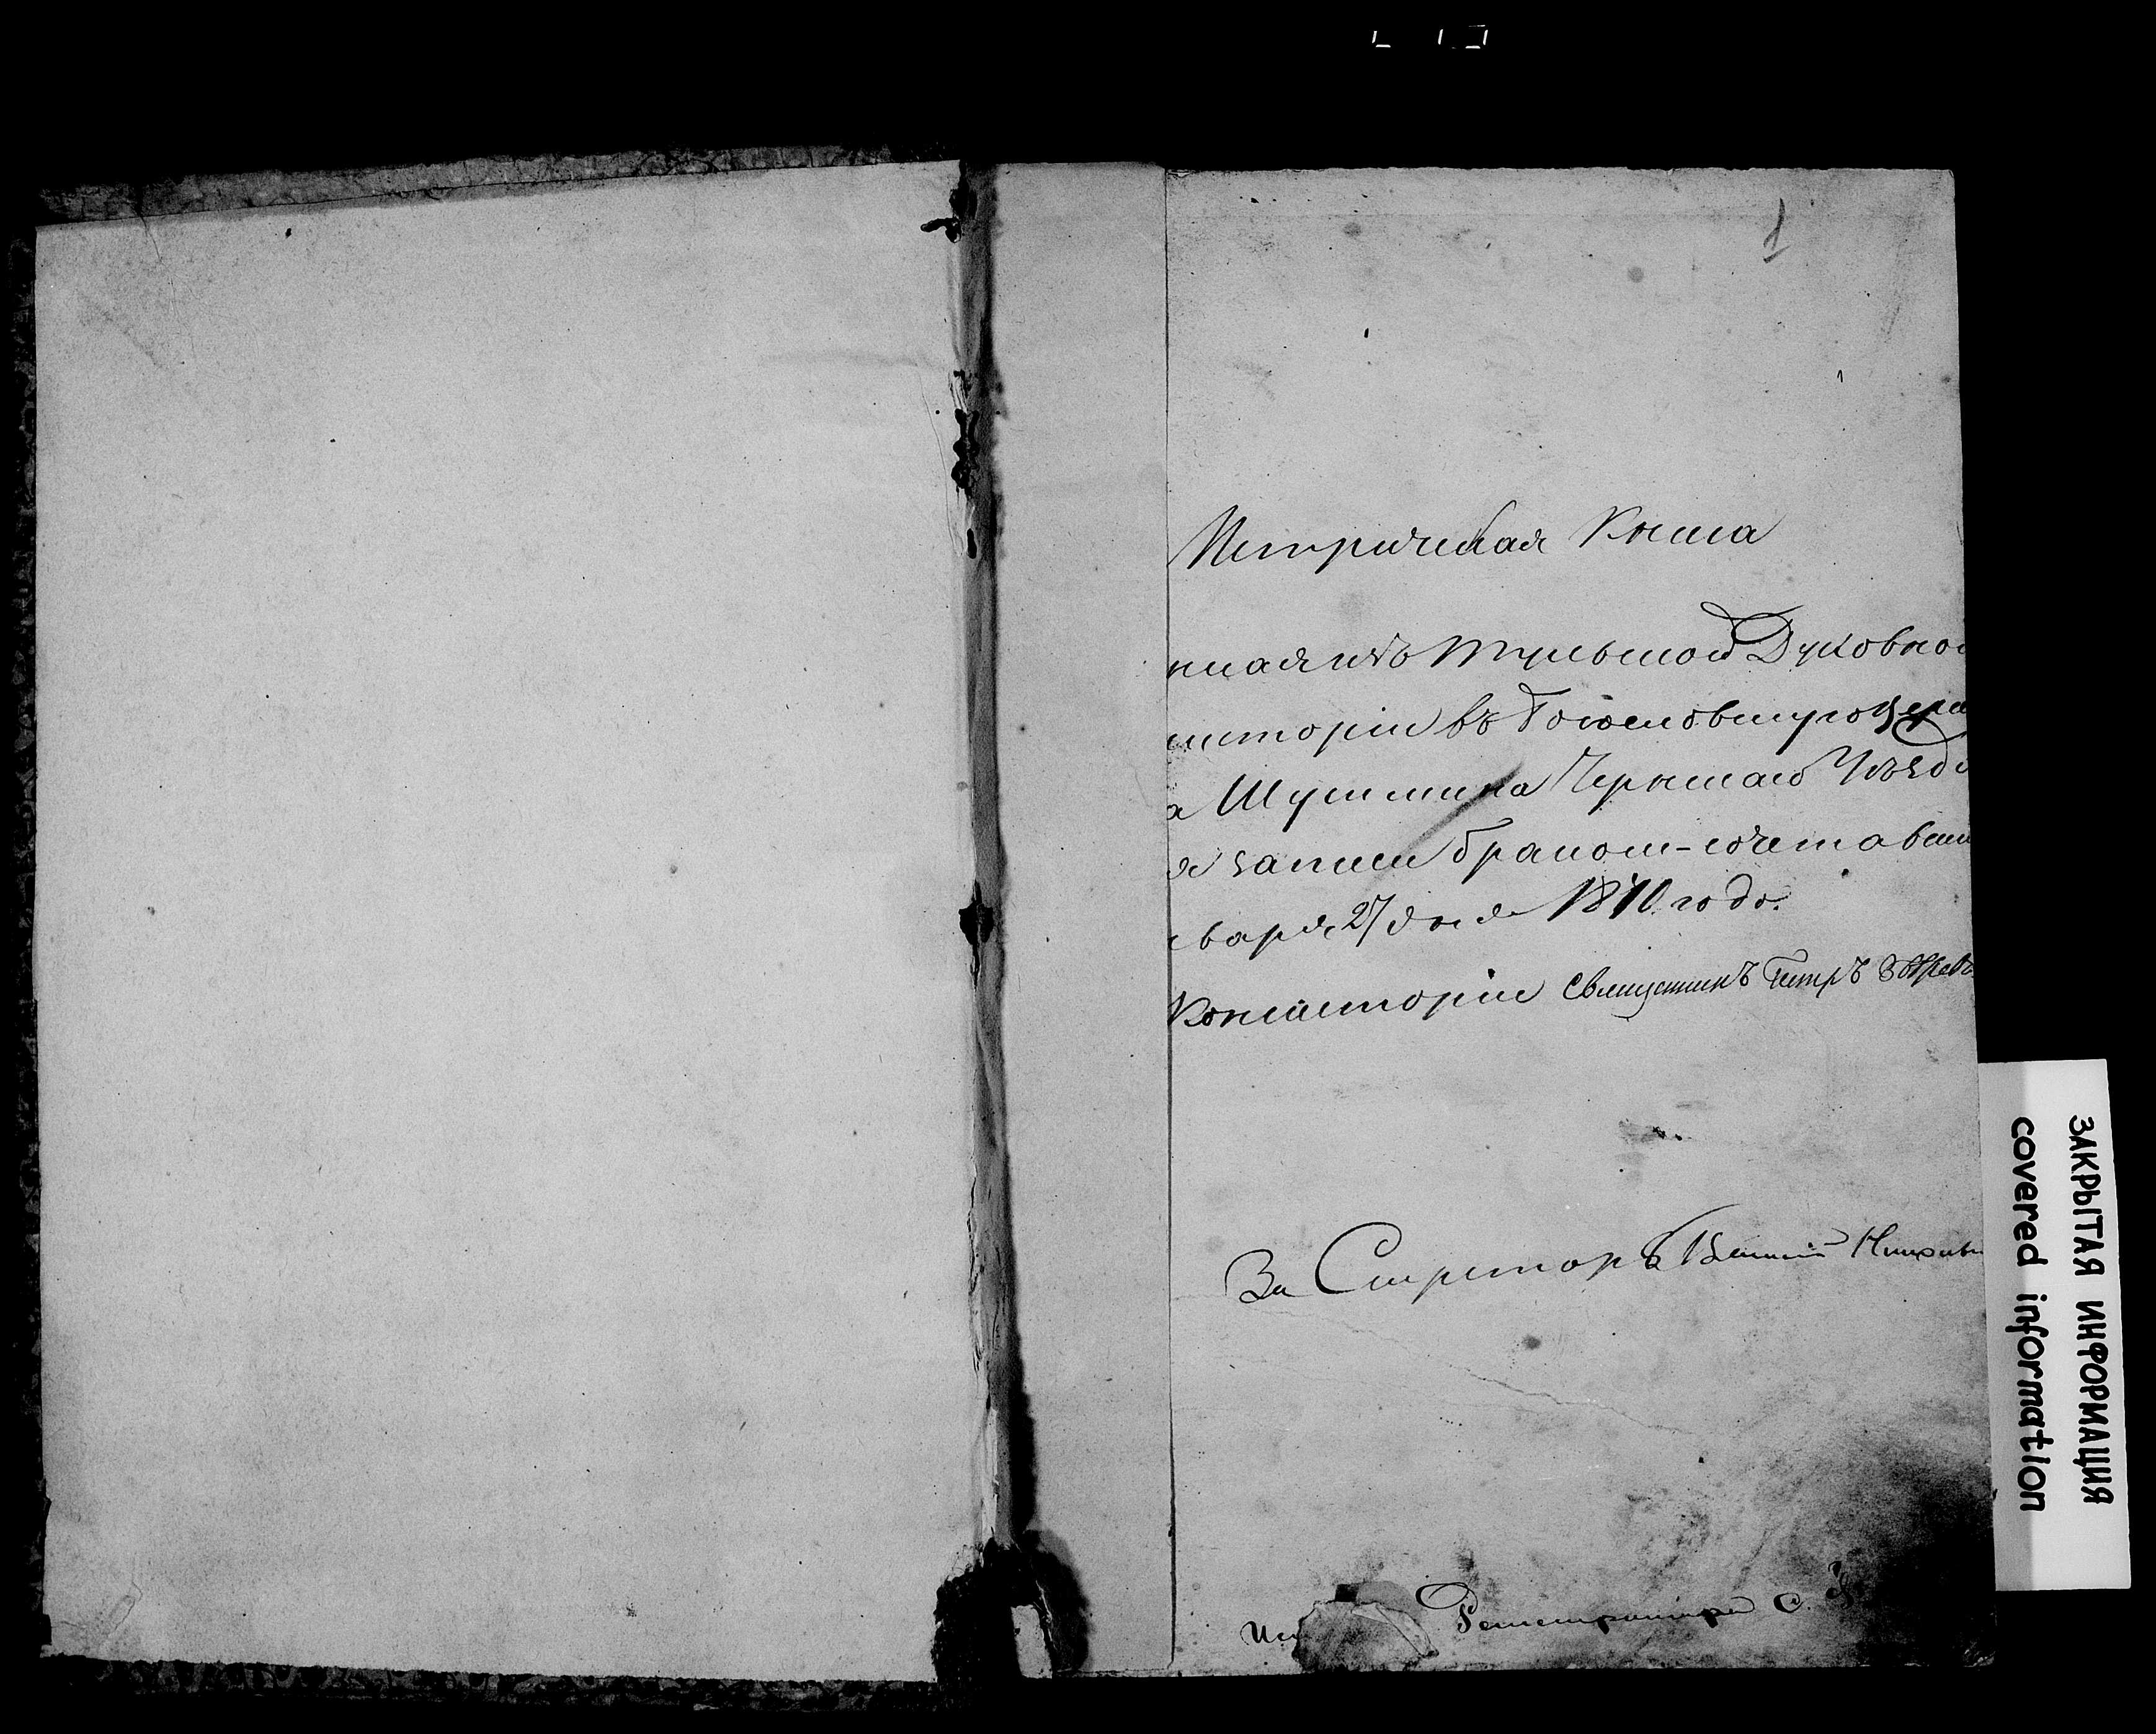 1
Метрическая Книга
нная изъ Тульской Духовной
систоріи въ Богословскую цер
а Шушмина Чернскаго Уѣзда
я записи бракомъ-сочетавши
варя 27 дня 1870 года.
Консисторіи Священникъ Петръ
За Секретаря
Регистратора
ЗАКРЫТАЯ ИНФОРМАЦИЯ
covered information